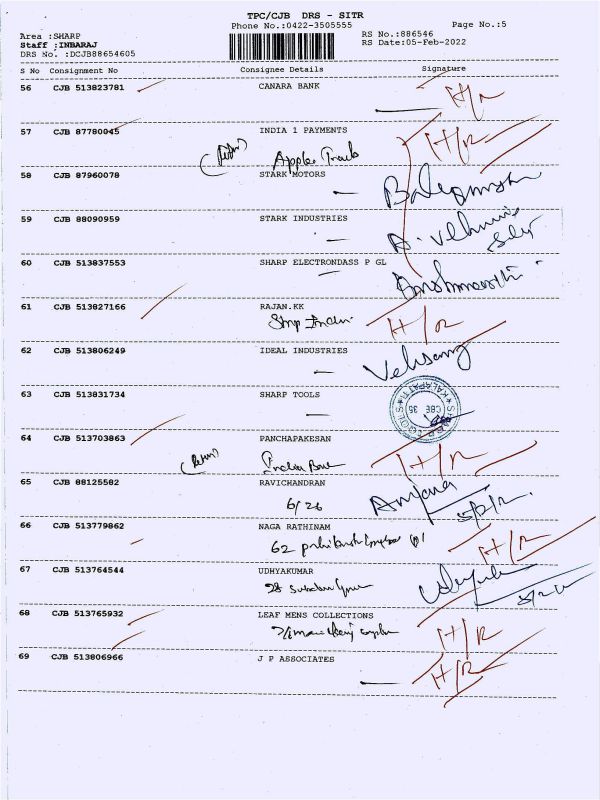 TPC/CJB DRS - SITR
Phone No.:0422-3505555
Page No.:5
Area :SHARP
RS No.:886546
Staff :INBARAJ
RS Date:05-Feb-2022
DRS No. :DCJB88654605
S No Consignment No Consignee Details Signature
56 CJB 513823781 CANARA BANK
H/R
57 CJB 87780045 INDIA 1 PAYMENTS
H/R
Apple Track
58 CJB 87960078 STARK MOTORS
59 CJB 88090959 STARK INDUSTRIES
60 CJB 513837553 SHARP ELECTRONDASS P GL
61 CJB 513827166 RAJAN.KK
H/R
62 CJB 513806249 IDEAL INDUSTRIES
63 CJB 513831734 SHARP TOOLS
SHARP TOOLS * KALAPATTI *
CBE 35
64 CJB 513703863 PANCHAPAKESAN
(Return) H/R
65 CJB 88125582 RAVICHANDRAN
6/26 Anjana
5/2/22
66 CJB 513779862 NAGA RATHINAM
62 H/R
67 CJB 513764544 UDHYAKUMAR
28
68 CJB 513765932 LEAF MENS COLLECTIONS
H/R
69 CJB 513806966 J P ASSOCIATES
H/R